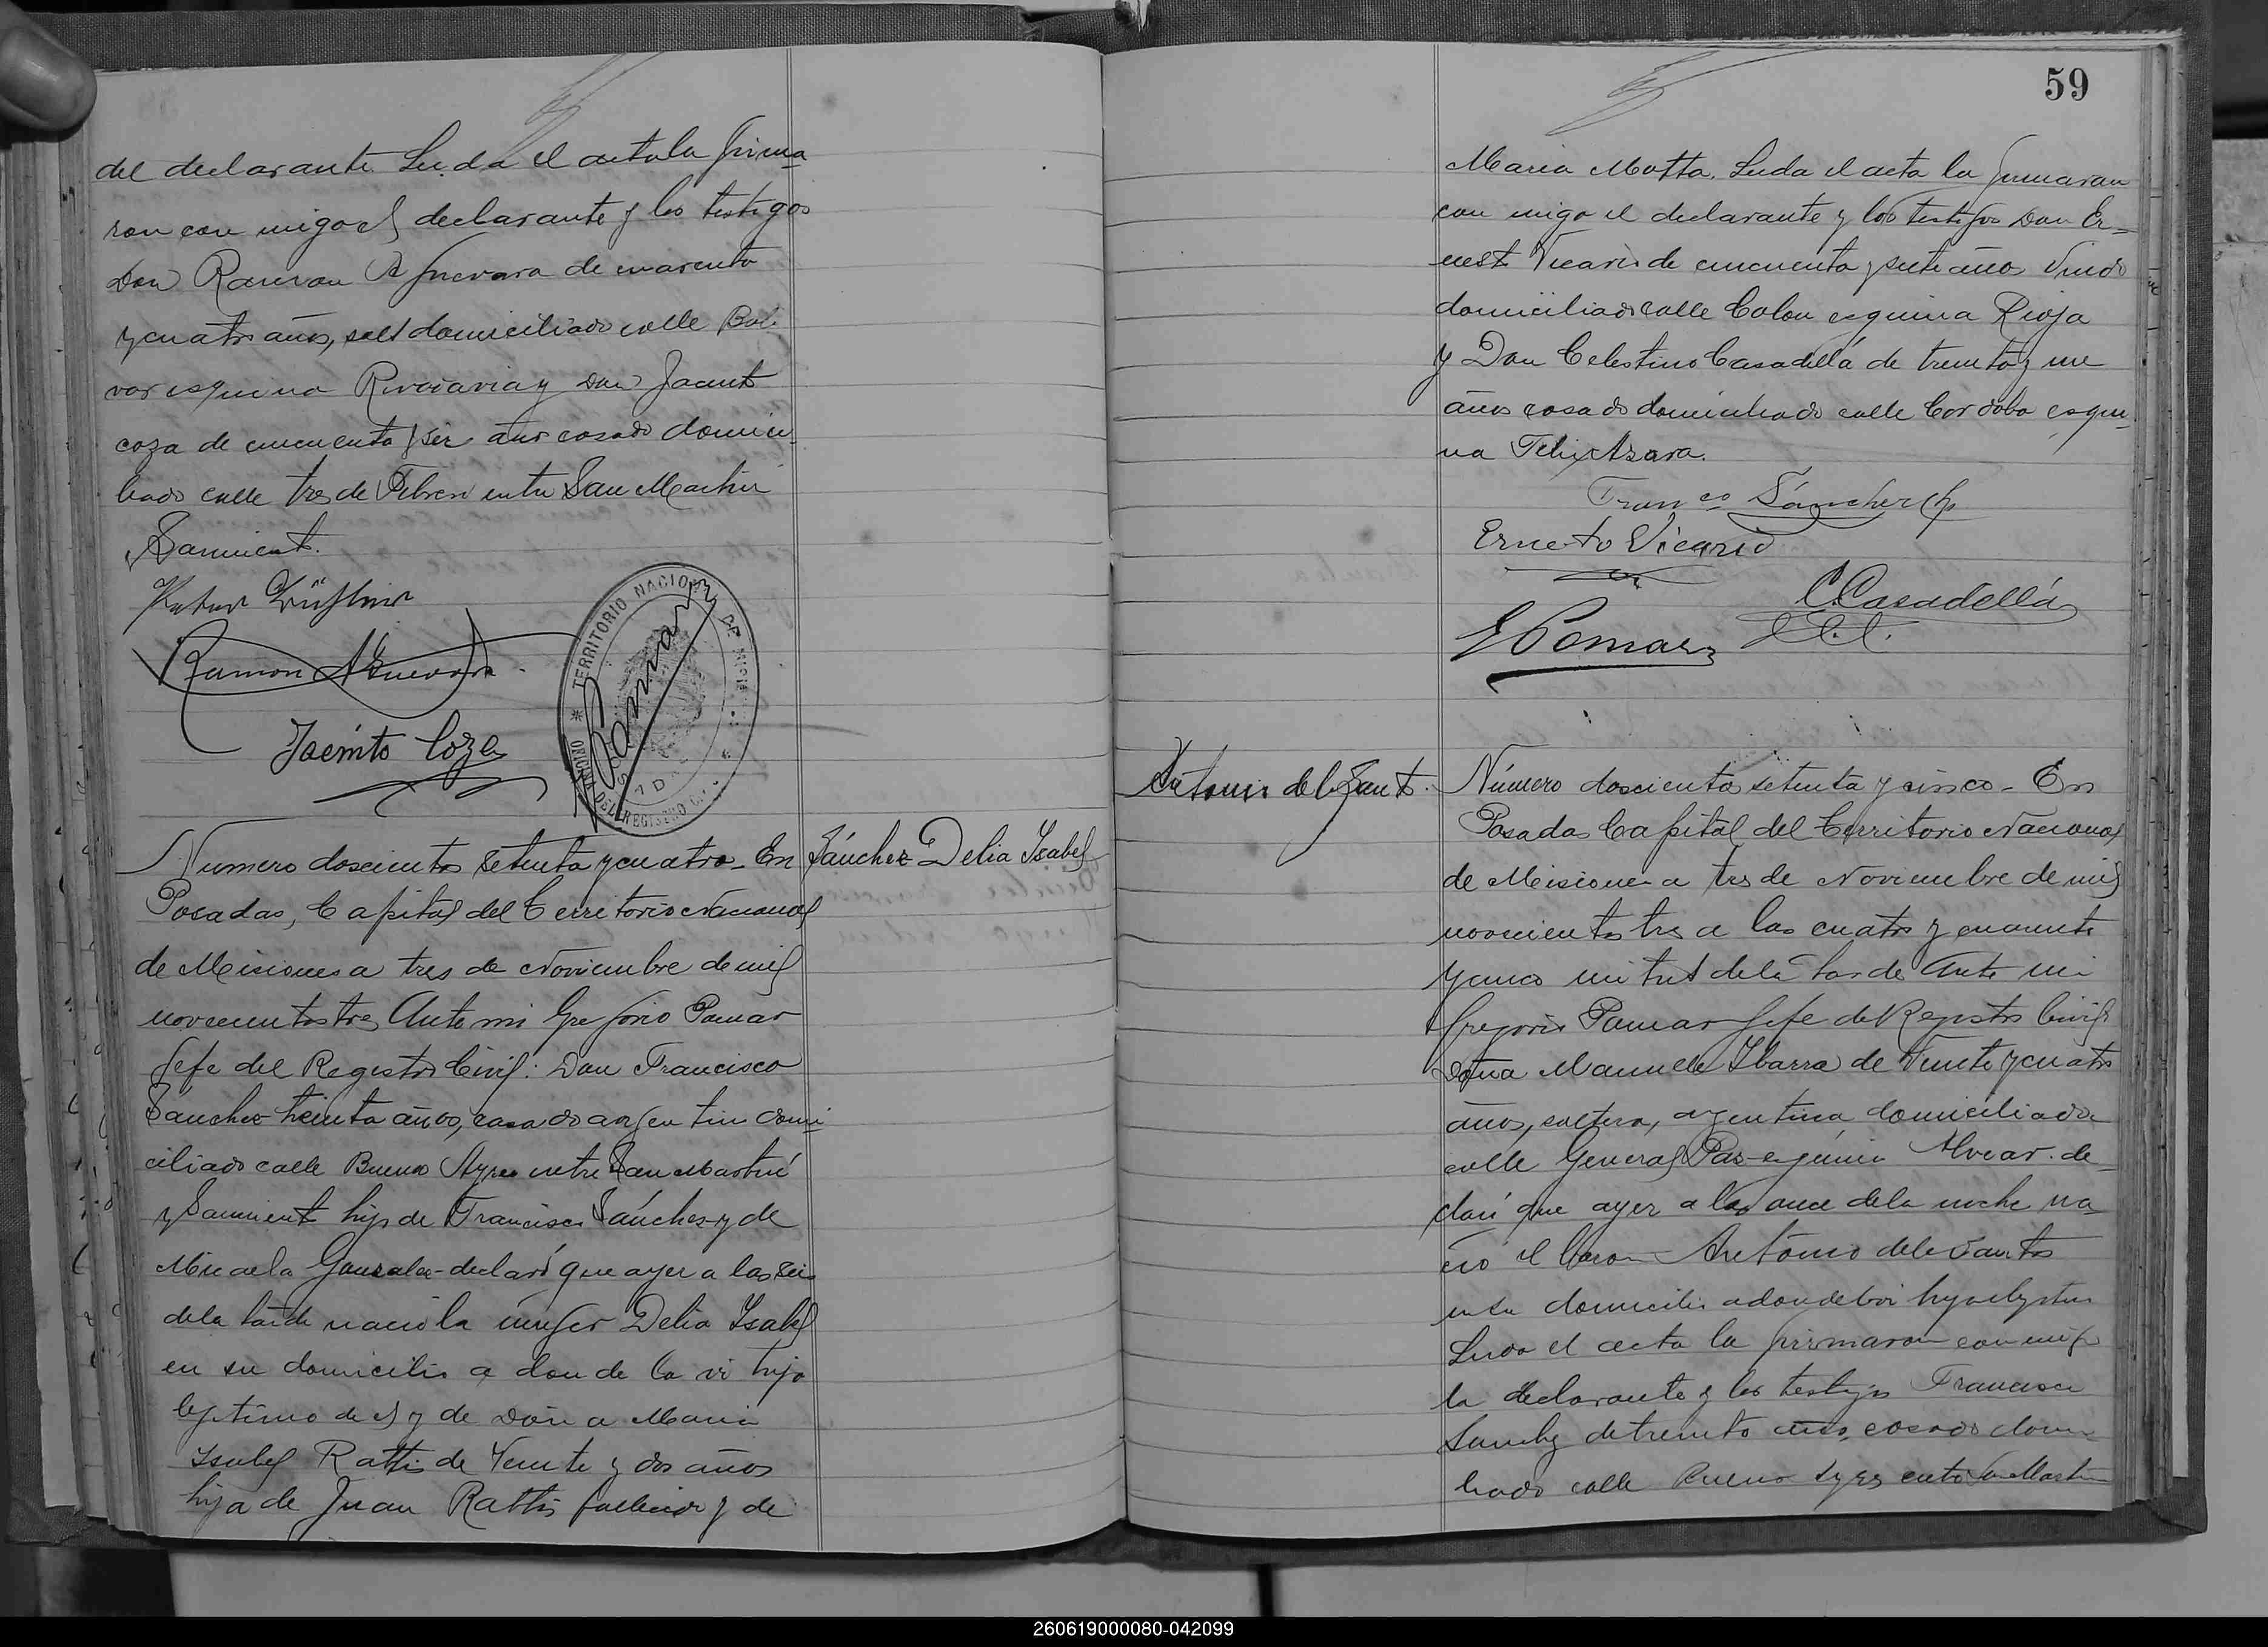 del declarante Leida el acta la firma
ron con migo el declarante y los testigos
Don Ramon A Guevara de cuarenta
y cuatro años, solt domiciliado calle Boli
var esquina Rivadavia y Don Jacinto
Coza de cincuenta y seis años casado domici
liado calle tres de Febrero entre San Martin
Sarmiento.
Ramon A Guevara
Jacinto Coza
TERRITORIO NACIONAL DE MISIONES
OFICINA DEL REGISTRO CIVIL
POSADAS
Pomar
Numero doscientos setenta y cuatro - En
Sánchez Delia Isabel
Posadas, Capital del Territorio Nacional
de Misiones a tres de Noviembre de mil
novecientos tres Ante mi Gregorio Pomar
Jefe del Registro Civil: Don Francisco
Sanchez treinta años, casado argentino domi
ciliado calle Buenos Ayres entre San Martin
y Sarmiento hijo de Francisco Sánchez y de
Micaela Gonzalez - declaró que ayer a las seis
de la tarde nació la muger Delia Isabel
en su domicilio a donde la vi hija
legitimo de el y de Doña Maria
Isabel Rattis de Veinte y dos años
hija de Juan Rattis fallecido y de
59
Maria Motta. Leida el acta la firmaran
con migo el declarante y los testigos Don Er-
nesto Vicario de cincuenta y siete años Viudo
domiciliado calle Colon esquina Rioja
y Don Celestino Casadellá de treinta y un
años casado domiciliado calle Cordoba esqui-
na Felix Azara.
Franco Sánchez (h)
Ernesto Vicario
C. Casadellá
G Pomar
Antonio de los Santos.
Número doscientos setenta y cinco - En
Posadas Capital del Territorio Nacional
de Misiones a tres de Noviembre de mil
novecientos tres a las cuatro y cuarenta
y cinco minutos de la tarde Ante mi
Gregorio Pomar Jefe del Registro Civil
Doña Manuela Ybarra de Veinte y cuatro
años, soltera, argentina domiciliada
calle General Paz esquina Alvear. de-
claró que ayer a las once de la noche na
ció el Varon Antonio de los Santos
en su domicilio a donde lo vi hijo ilegitimo
Leida el acta la firmaron con migo
la declarante y los testigos Francisco
Sanchez de treinta años, casado domici
liado calle Buenos Ayres entre San Martin